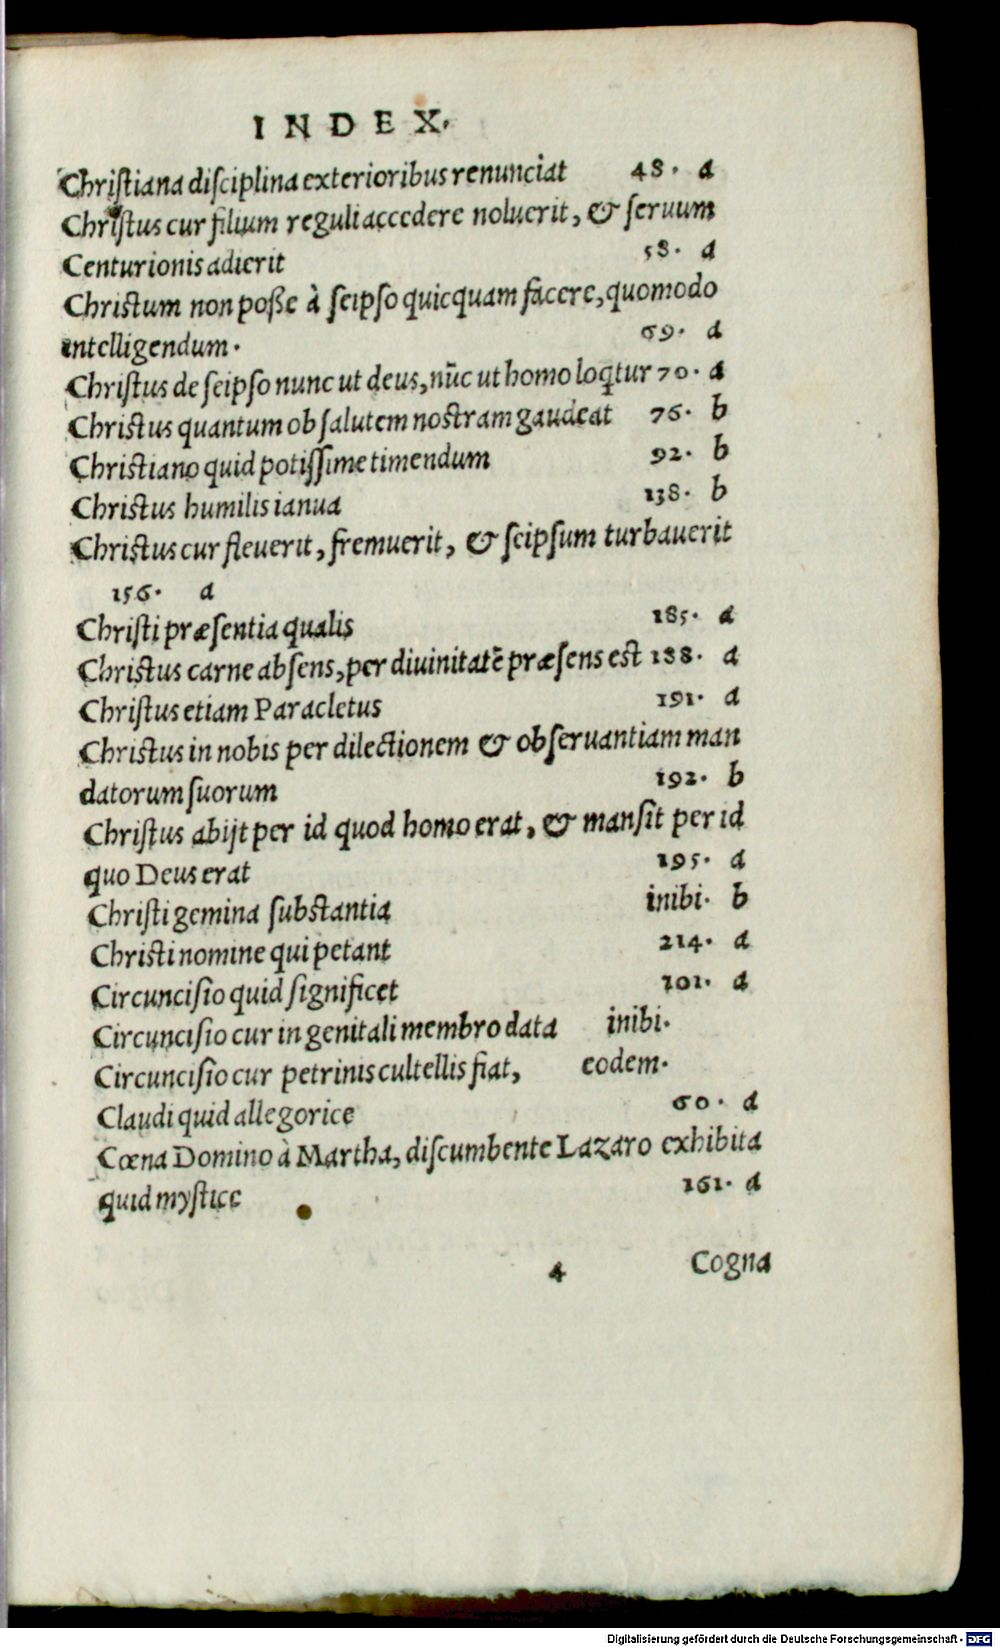 INDEX.
Chriſtiana diſciplina exterioribus renunciat 48. a
Chriſtus cur filium reguli accedere noluerit, & ſeruum
Centurionis adierit 58. a
Christum non poße à ſeipſo quicquam facere, quomodo
intelligendum. 69. a
Christus de ſeipſo nunc ut deus, nūc ut homo loq̃tur 70. a
Christus quantum ob ſalutem nostram gaudeat 76. b
Christiano quid potiſſime timendum 92. b
Christus humilis ianua 138. b
Christus cur fleuerit, fremuerit, & ſeipſum turbauerit
156. a
Chriſti præſentia qualis 185. a
Christus carne abſens, per diuinitatē præſens est 188. a
Chriſtus etiam Paracletus 191. a
Christus in nobis per dilectionem & obſeruantiam man
datorum ſuorum 192. b
Chriſtus abijt per id quod homo erat, & manſit per id
quo Deus erat 195. a
Christi gemina ſubstantia inibi. b
Christi nomine qui petant 214. a
Circunciſio quid ſignificet 101. a
Circunciſio cur in genitali membro data inibi.
Circunciſio cur petrinis cultellis fiat, eodem.
Claudi quid allegorice 60. a
Cœna Domino à Martha, diſcumbente Lazaro exhibita
quid myſtice 161. a
4 Cogna
Digitalisierung gefördert durch die Deutsche Forschungsgemeinschaft - DFG